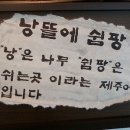 낭뜰에 쉼팡
"낭"은 나무 "쉼팡"은
쉬는곳 이라는 제주어
입니다